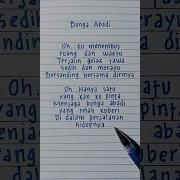 Bunga Abadi
Oh.. ku menembus
ruang dan waktu
Terjalin gelak tawa
sedih dan merayu
Bersanding bersama dirinya..
Oh.. Hanya satu
yang kan ku pinta
Menjaga bunga abadi
yang telah kuberi
Di dalam perjalanan
hidupnya..